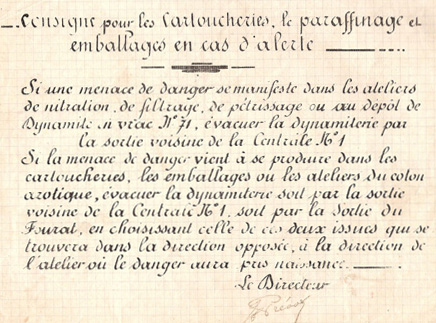 Consigne pour les Cartoucheries, le paraffinage et
emballages en cas d'alerte
Si une menace de danger se manifeste dans les ateliers
de nitration, de filtrage, de pétrissage ou au dépôt de
Dynamite en vrac N° 71, évacuer la dynamiterie par
la sortie voisine de la Centrale N° 1
Si la menace de danger vient à se produire dans les
cartoucheries, les emballages ou les ateliers du coton
azotique, évacuer la dynamiterie soit par la sortie
voisine de la Centrale N° 1, soit par la Sortie du
Fourat, en choisissant celle de ces deux issues qui se
trouvera dans la direction opposée, à la direction de
l'atelier où le danger aura pris naissance.
Le Directeur